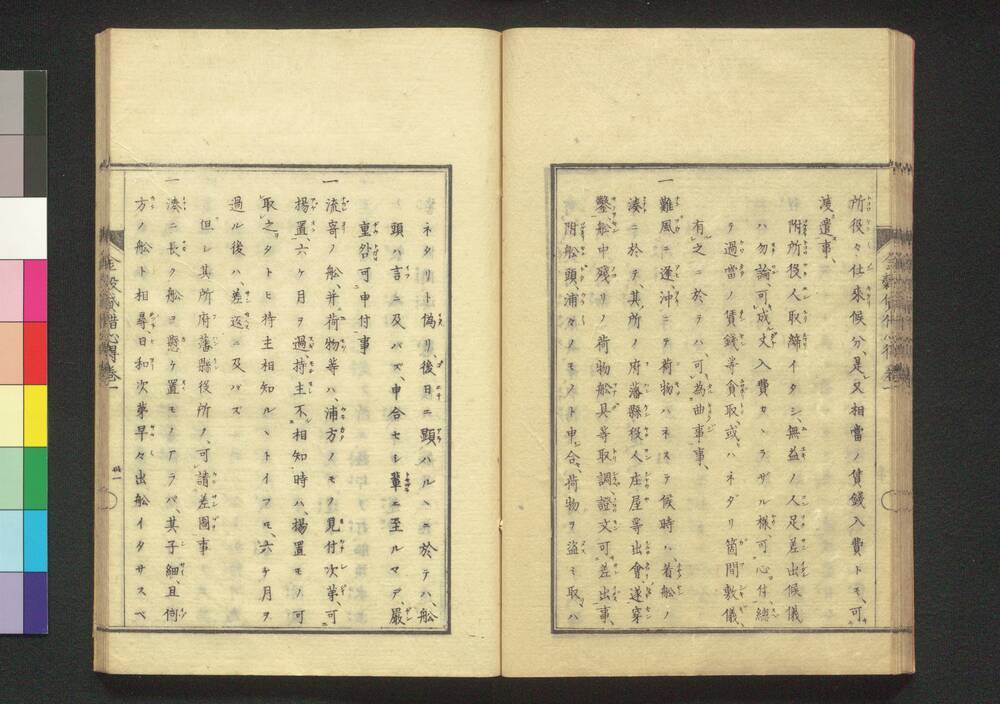 所役々仕来候分、是又相當ノ賃銭入費トモ、可
渡遣事、
附所役人取締イタシ、無益ノ人足差出候儀
ハ勿論、可成丈入費カヽラザル様、可心付、総
ヲ過當ノ賃銭等貪取、或ハネダリ箇間敷儀、
有之ニ於テハ、可為曲事事、
一難風ニ逢、沖ニテ荷物ハネステ候時ハ、着船ノ
湊ニ於テ、其所ノ府藩縣役人庄屋等出會、遂穿
鑿、船中残リノ荷物船具等取調、證文可差出事、
附船頭、浦々ノモノト申合、荷物ヲ盗ミ取、ハ
ネタリト偽リ、後日ニ顕ハルヽニ於テハ、船
頭ハ言ニ及バズ、申合セシ輩ニ至ルマデ、嚴
重咎可申付事
一流寄ノ船、并荷物等ハ、浦方ノモノ見付次第、可
揚置、六ケ月ヲ過、持主不相知時ハ、揚置モノ可
取之、タトヒ持主相知ルヽトイフモ、六ケ月ヲ
過ル後ハ、差返ニ及バズ
但シ其所府藩縣後所ノ、可請差圖事
一湊ニ長ク船ヲ懸ケ置モノアラバ、其子細、且何
方ノ船ト相尋、日和次第早々出船イタサスベ